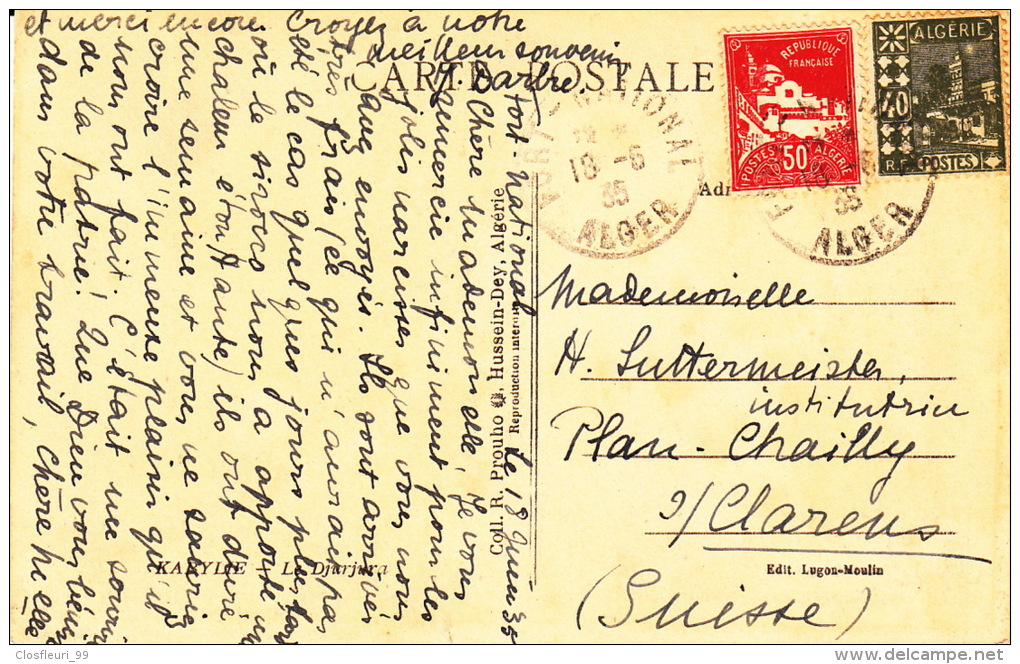 CARTE POSTALE
Fort-National
Le 18 Juin 35
Chère Mademoiselle, Je vous
remercie infiniment pour les
jolis narcisses que vous nous
avez envoyés. Ils sont arrivés
très frais (ce qui n'aurait pas
été le cas quelques jours plus tard
où le sirocco nous a apporté une
chaleur étouffante) ils ont duré
une semaine et vous ne sauriez
croire l'immense plaisir qu'ils
nous ont fait. C'était un souvenir
de la patrie! Que Dieu vous bénisse
dans votre travail, chère
et merci encore. Croyez à notre
meilleur souvenir
Barbre.
Coll. R. Prouho, Hussein-Dey, Algérie
Reproduction interdite
KABYLIE - Le Djurjura
RÉPUBLIQUE
FRANÇAISE
POSTES 50 ALGÉRIE
ALGÉRIE
40
R.F. POSTES
FORT NATIONAL
18 -6
35
ALGER
35
ALGER
Adr
Mademoiselle
H. Suttermeister,
institutrice
Plan-Chailly
s/Clarens
Edit. Lugon-Moulin
(Suisse)
Closfleuri_99
delcampe.net